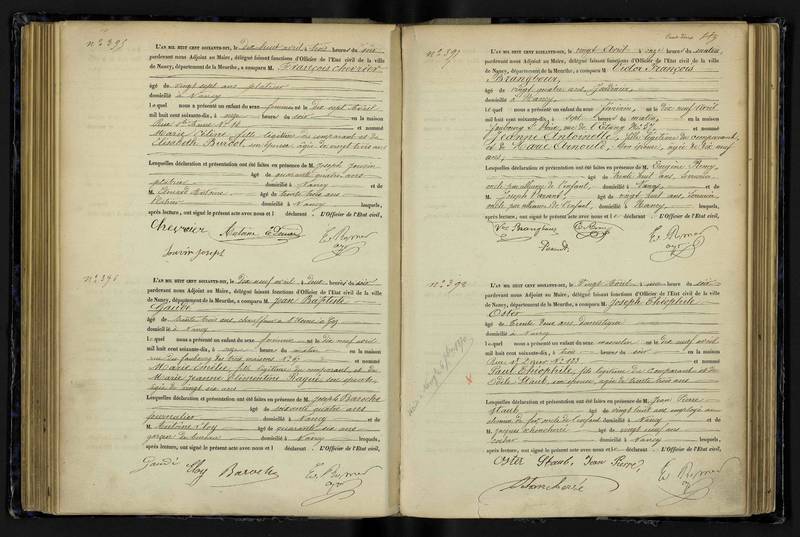 n° 395
L'AN MIL HUIT CENT SOIXANTE-DIX, le dix huit avril à trois heures du soir
pardevant nous Adjoint au Maire, délégué faisant fonctions d'Officier de l'Etat civil de la ville
de Nancy, département de la Meurthe, a comparu M. François Chevrier
âgé de vingt sept ans platrier
domicilié à Nancy
Lequel nous a présenté un enfant du sexe féminin né le dix sept avril
mil huit cent soixante-dix, à heures du soir en la maison
Rue et nommé
Marie fille légitime du comparant et de
Elisabeth Burdot, son épouse, âgée de vingt trois ans
Lesquelles déclaration et présentation ont été faites en présence de M. Joseph
âgé de quarante quatre ans
platrier domicilié à Nancy et de
M. Antoine âgé de trente trois ans
platrier domicilié à Nancy lesquels,
après lecture, ont signé le présent acte avec nous et l déclarant. L'Officier de l'Etat civil,
Chevrier
n° 396
L'AN MIL HUIT CENT SOIXANTE-DIX, le dix neuf avril à deux heures du soir
pardevant nous Adjoint au Maire, délégué faisant fonctions d'Officier de l'Etat civil de la ville
de Nancy, département de la Meurthe, a comparu M. Jean Baptiste
Gaudé
âgé de trente trois ans, chauffeur à l'Usine à Gaz
domicilié à Nancy
Lequel nous a présenté un enfant du sexe féminin né le dix neuf avril
mil huit cent soixante-dix, à heures du matin en la maison
rue du faubourg des trois maisons N° et nommé
Marie Amélie, fille légitime du comparant et de
Marie Jeanne Clémentine son épouse,
âgée de vingt six ans
Lesquelles déclaration et présentation ont été faites en présence de M. Joseph Baroche
âgé de soixante quatre ans
domicilié à Nancy et de
M. Antoine Cloy âgé de quarante six ans
garçon de bureau domicilié à Nancy lesquels,
après lecture, ont signé le présent acte avec nous et l déclarant. L'Officier de l'Etat civil,
Gaudé Cloy Baroche
n° 397
L'AN MIL HUIT CENT SOIXANTE-DIX, le vingt avril à onze heures du matin,
pardevant nous Adjoint au Maire, délégué faisant fonctions d'Officier de l'Etat civil de la ville
de Nancy, département de la Meurthe, a comparu M. Victor François
âgé de vingt quatre ans,
domicilié à Nancy
Lequel nous a présenté un enfant du sexe féminin, né le dix neuf avril
mil huit cent soixante-dix, à sept heures du matin, en la maison
faubourg St Pierre, rue de l'Etang et nommé
Jeanne Antoinette, fille légitime du comparant,
et de Marie son épouse, âgée de dix neuf
ans,
Lesquelles déclaration et présentation ont été faites en présence de M. Eugène Remy,
âgé de trente huit ans,
oncle par alliance de l'enfant, domicilié à Nancy et de
M. Joseph âgé de vingt huit ans,
oncle par alliance de l'enfant, domicilié à Nancy lesquels,
après lecture, ont signé le présent acte avec nous et l déclarant. L'Officier de l'Etat civil,
n° 398
L'AN MIL HUIT CENT SOIXANTE-DIX, le vingt avril à heures du soir
pardevant nous Adjoint au Maire, délégué faisant fonctions d'Officier de l'Etat civil de la ville
de Nancy, département de la Meurthe, a comparu M. Joseph Théophile
Oster
âgé de trente deux ans domestique
domicilié à Nancy
Lequel nous a présenté un enfant du sexe masculin né le dix neuf avril
mil huit cent soixante-dix, à trois heures du soir en la maison
Rue St Dizier N° et nommé
Paul Théophile, fils légitime du comparant et de
Odile Staub, son épouse, âgée de trente trois ans
Lesquelles déclaration et présentation ont été faites en présence de M. Jean Pierre
Staub âgé de vingt huit ans employé au
chemin de fer, oncle de l'enfant domicilié à Nancy et de
M. Jacques âgé de vingt neuf ans
domicilié à Nancy lesquels,
après lecture, ont signé le présent acte avec nous et l déclarant. L'Officier de l'Etat civil,
Oster Staub, Jean Pierre,